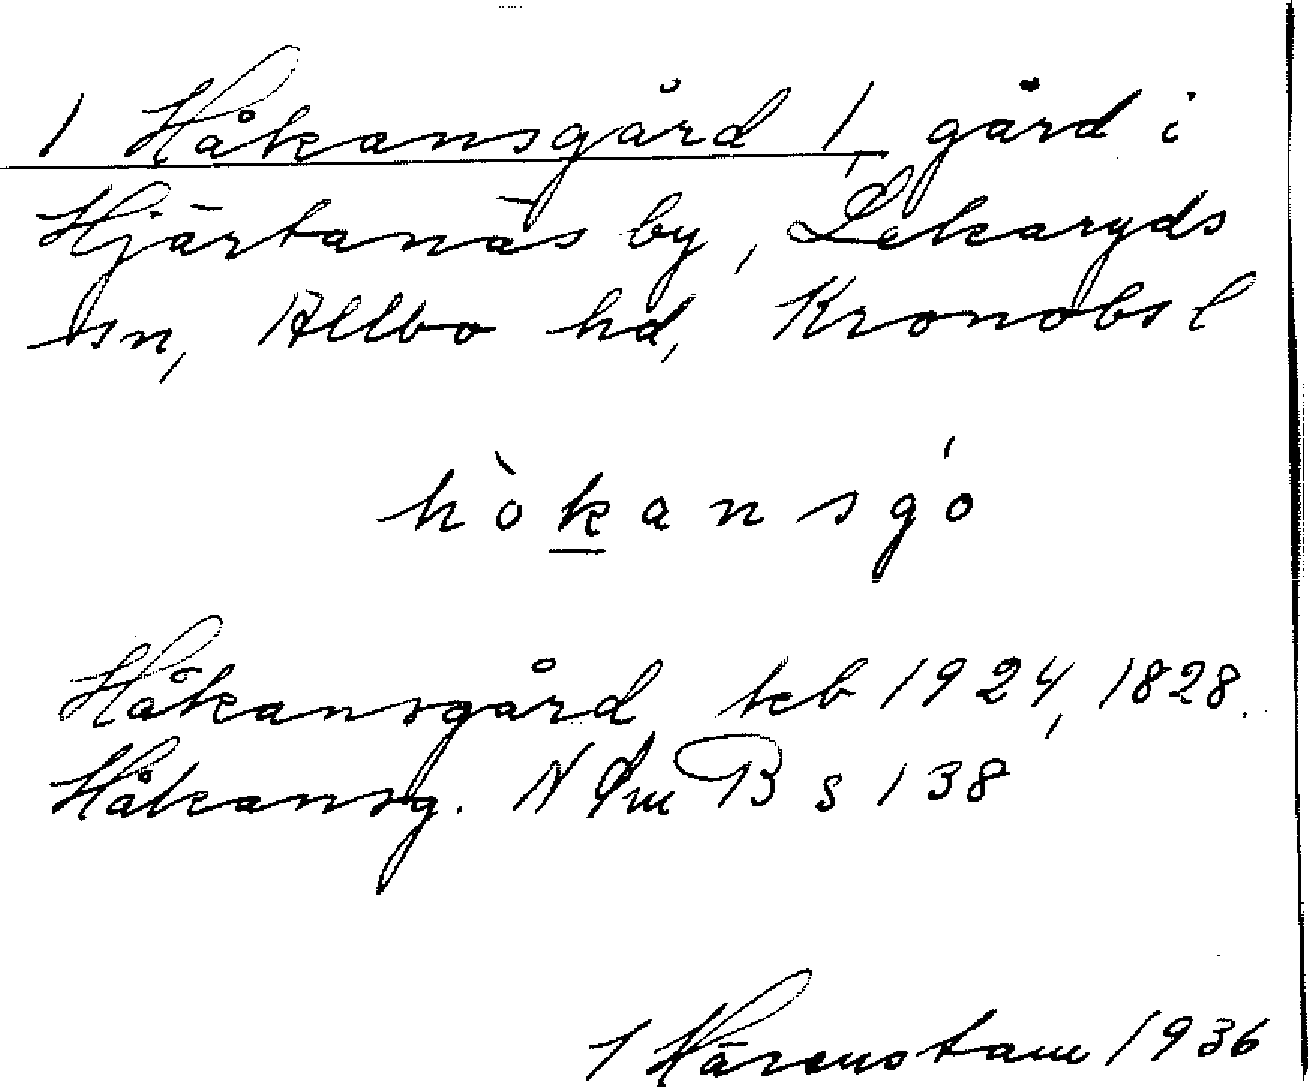 1 Håkansgård 1, gård i
Hjärtanäs by, Lekaryds
sn, Allbo hd, Kronobs l
hòkansgó
Håkansgård teb 1924, 1828.
Håkansg. N Sm B s 138
1936